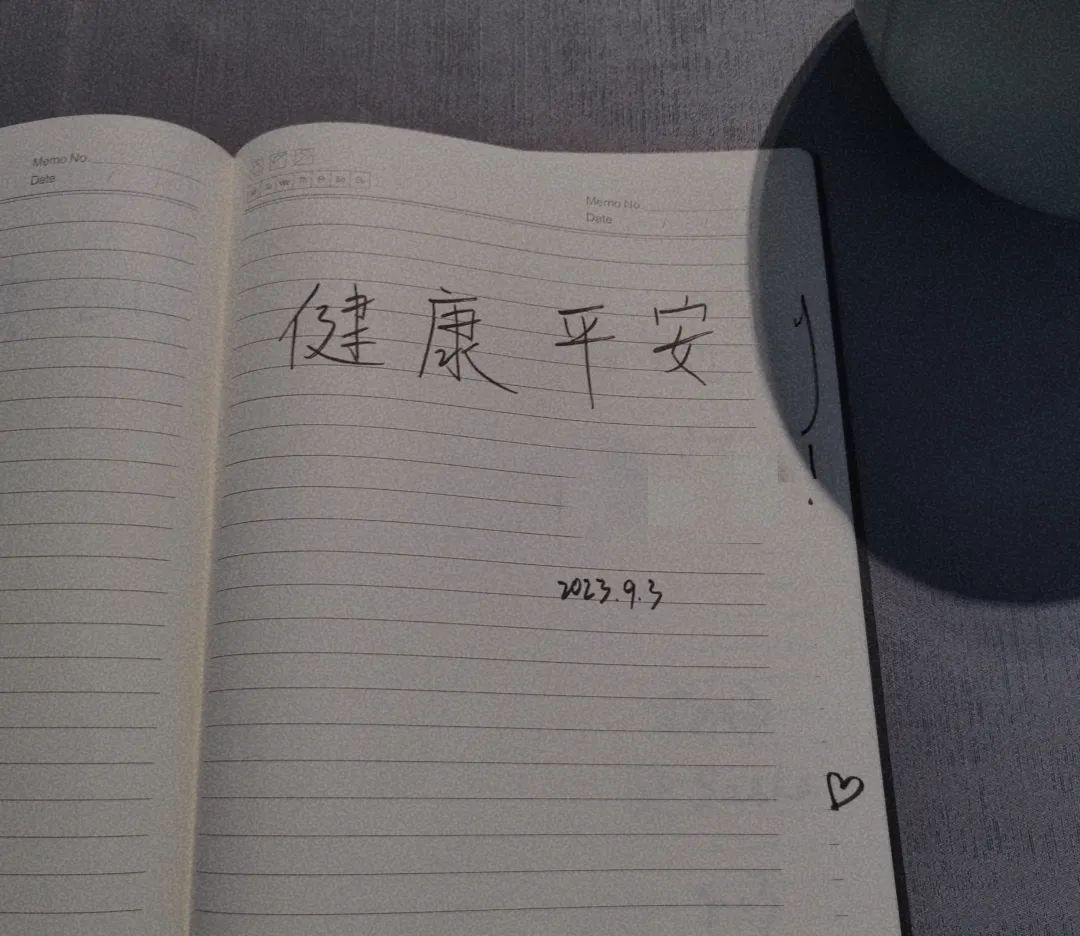 Memo No.
Date
Mo Tu We Th Fr Sa Su
Memo No.
Date
健康平安
!
2023.9.3